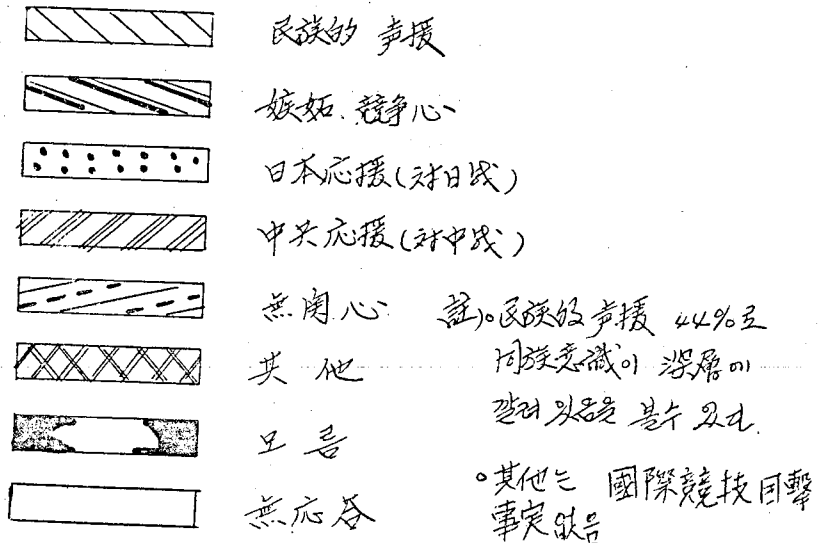 民族的 声援
嫉妬. 競争心
日本応援(対日戦)
中共応援(対中戦)
無関心
其 他
모 름
無応答
註)∘民族的 声援 44%로
同族意識이 深層에
깔려 있음을 볼수 있다.
∘其他는 國際競技目擊
事実 없음